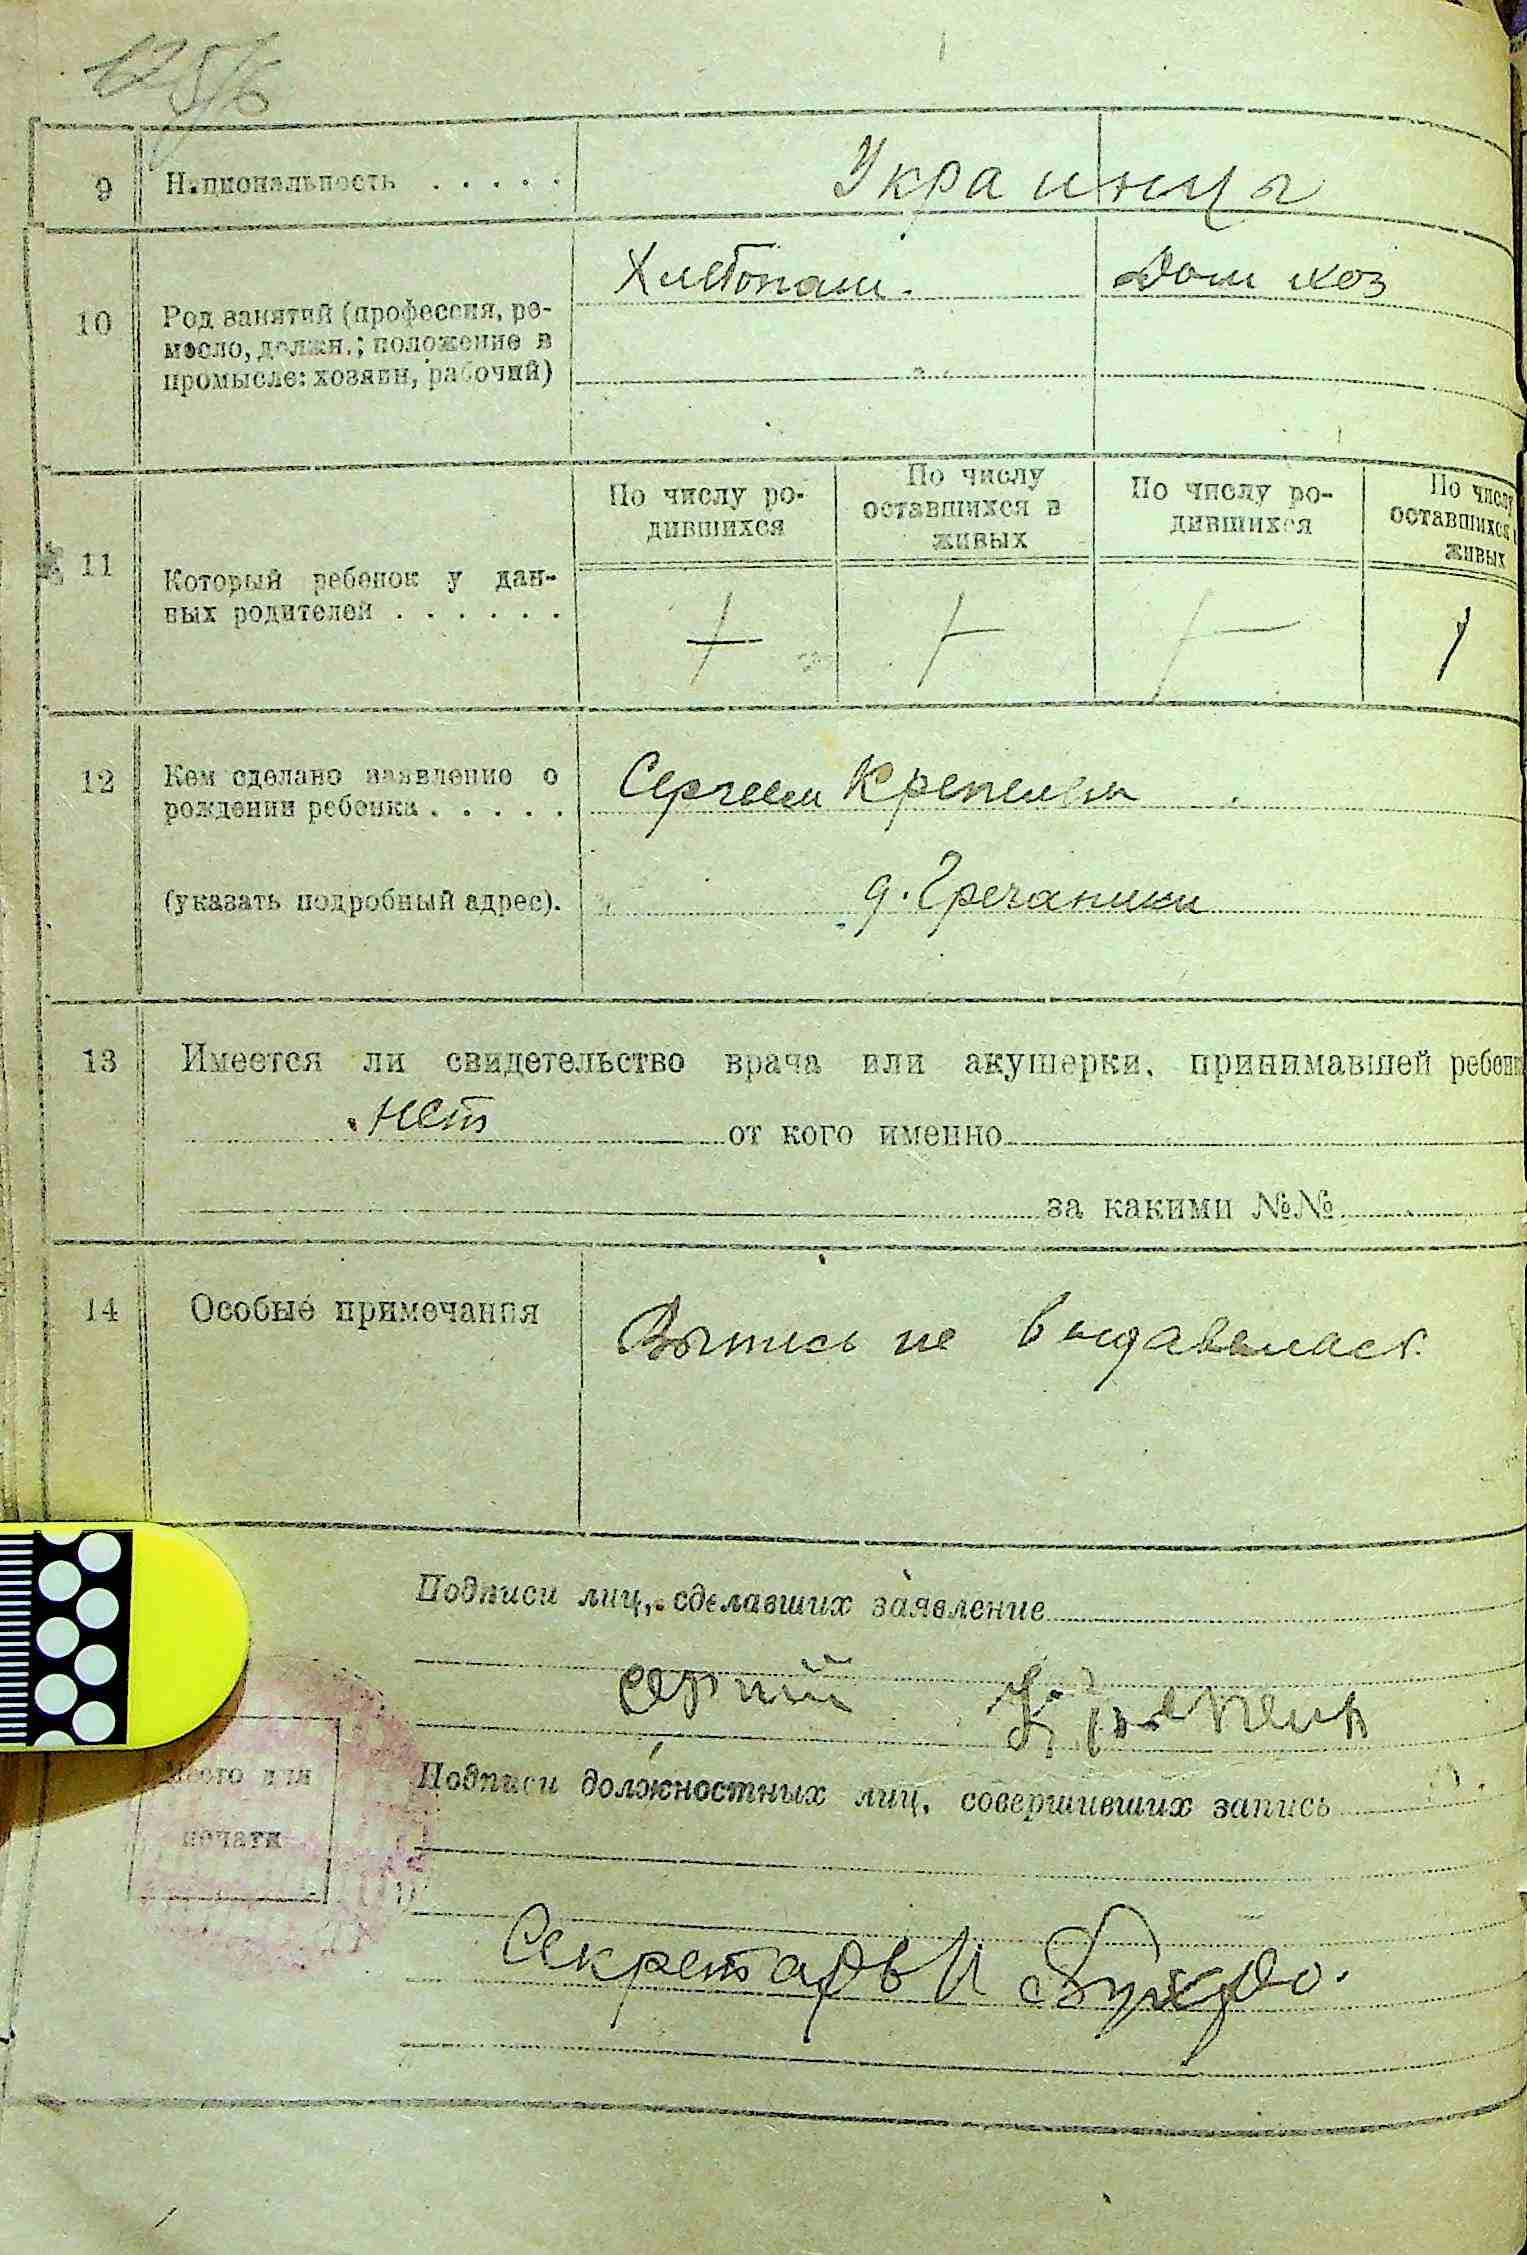 125/6
9 Национальность . . . . . Украинцы
10 Род занятий (профессия, ре-
месло, должн.; положение в
промысле: хозяин, рабочий)
Хлебопаш. Дом хоз
11 Который ребенок у дан-
ных родителей . . . . . .
По числу ро-
дившихся
По числу
оставшихся в
живых
По числу ро-
дившихся
По числу
оставшихся
живых
12 Кем сделано заявление о
рождении ребенка . . . . .
Сергеем
(указать подробный адрес).
д. Гречаники
13 Имеется ли свидетельство врача или акушерки, принимавшей
нет от кого именно
за какими №№
14 Особые примечания
Выпись не выдавалась.
Подписи лиц, сделавших заявление
Подписи должностных лиц, совершивших запись
Место для
печати
Секретарь И